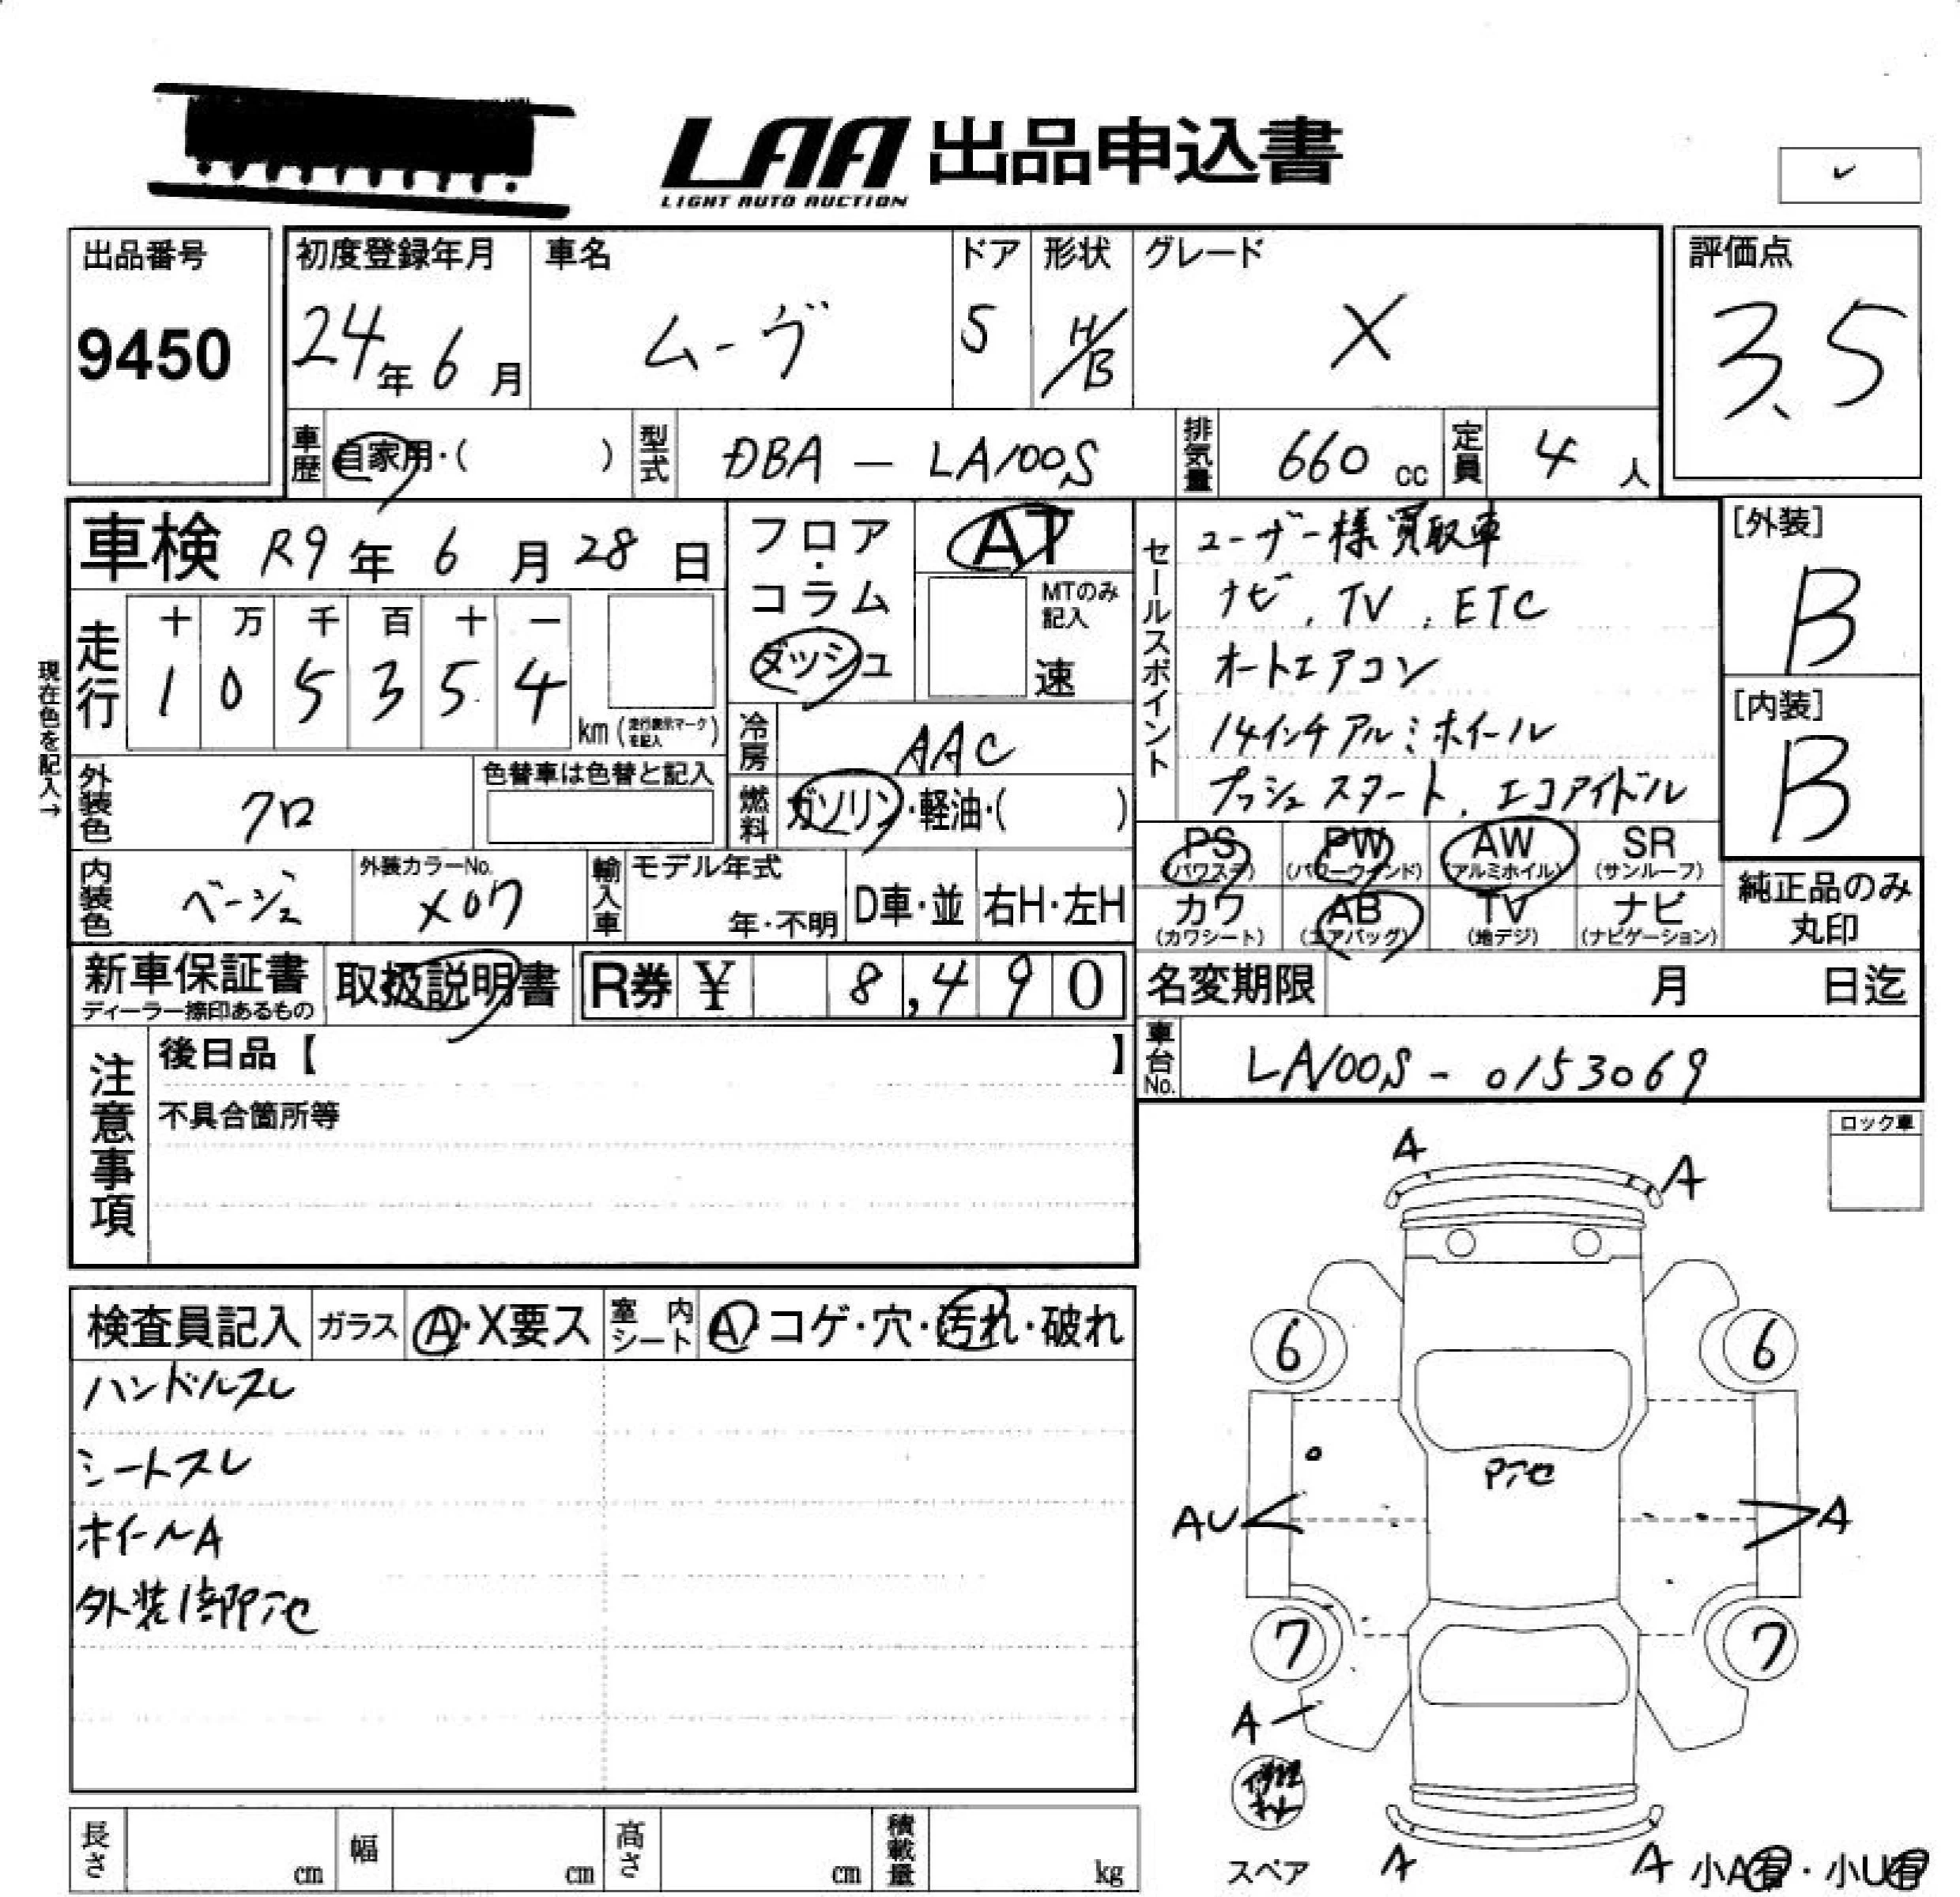 LAA 出品申込書
LIGHT AUTO AUCTION
出品番号 初度登録年月 車名 ドア 形状 グレード 評価点
9450 24年 6月 ムーヴ 5 H/B X 3.5
車歴 自家用・( ) 型式 DBA - LA100S 排気量 660 cc 定員 4 人
車検 R9年 6月 28日 フロア・コラム ダッシュ AT MTのみ記入 速
走行 十 万 千 百 十 一
1 0 5 3 5 4 km (走行表示マークを記入)
現在色を記入→
外装色 クロ 色替車は色替と記入
冷房 AAC
燃料 ガソリン・軽油・( )
内装色 ベージュ 外装カラーNo. X07 輸入車 モデル年式 年・不明 D車・並 右H・左H
セールスポイント
ユーザー様買取車
ナビ、TV、ETC
オートエアコン
14インチアルミホイール
プッシュスタート、エコアイドル
[外装] B
[内装] B
PS (パワステ) PW (パワーウインド) AW (アルミホイル) SR (サンルーフ)
カワ (カワシート) AB (エアバッグ) TV (地デジ) ナビ (ナビゲーション)
純正品のみ丸印
新車保証書 ディーラー捺印あるもの 取扱説明書 R券 ¥ 8,490
名変期限 月 日迄
車台No. LA100S - 0153069
注意事項
後日品【 】
不具合箇所等
ロック車
検査員記入 ガラス A・X要ス 室内シート A・コゲ・穴・汚れ・破れ
ハンドルスレ
シートスレ
ホイールA
外装1部Pアセ
A A
6 6
Pアセ
AU A
7 7
A
スペア A A 小A有・小U有
長さ cm 幅 cm 高さ cm 積載量 kg